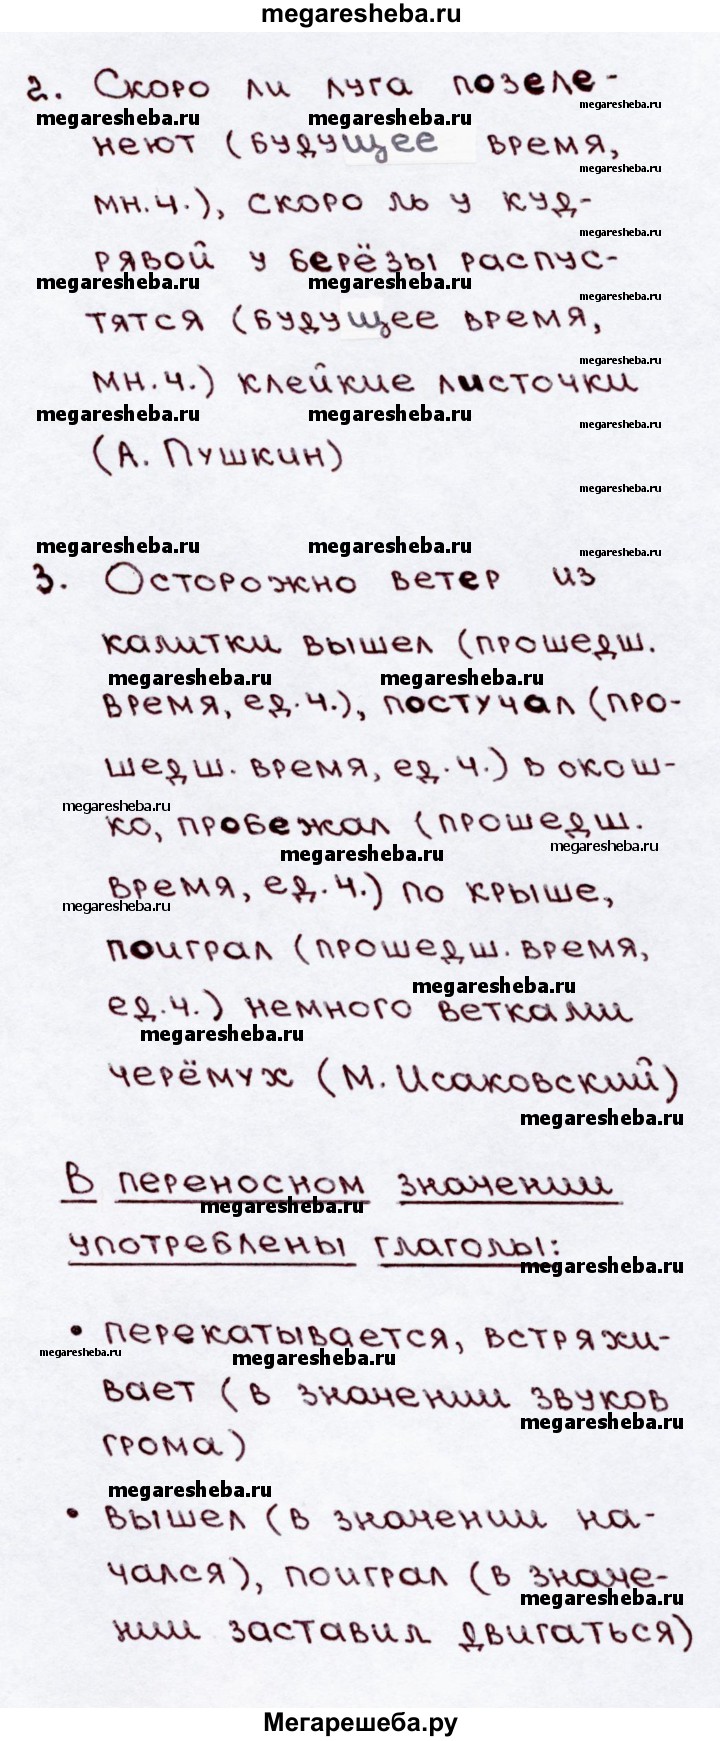 megaresheba.ru
2. Скоро ли луга позеле-
megaresheba.ru megaresheba.ru megaresheba.ru
неют (будущее время,
megaresheba.ru
мн.ч.), скоро ль у куд-
megaresheba.ru
рявой у берёзы распус-
megaresheba.ru megaresheba.ru megaresheba.ru
тятся (будущее время,
megaresheba.ru
мн.ч.) клейкие листочки
megaresheba.ru megaresheba.ru megaresheba.ru
(А. Пушкин)
megaresheba.ru
megaresheba.ru megaresheba.ru megaresheba.ru
3. Осторожно ветер из
megaresheba.ru
калитки вышел (прошедш.
megaresheba.ru megaresheba.ru
время, ед.ч.), постучал (про-
шедш. время, ед.ч.) в окош-
megaresheba.ru
ко, пробежал (прошедш.
megaresheba.ru megaresheba.ru
время, ед.ч.) по крыше,
megaresheba.ru
поиграл (прошедш. время,
megaresheba.ru
ед.ч.) немного ветками
megaresheba.ru
черёмух (М. Исаковский)
megaresheba.ru
В переносном значении
megaresheba.ru
употреблены глаголы:
megaresheba.ru
• перекатывается, встряхи-
megaresheba.ru megaresheba.ru
вает (в значении звуков
megaresheba.ru
грома)
megaresheba.ru
• вышел (в значении на-
чался), поиграл (в значе-
megaresheba.ru
нии заставил двигаться)
Мегарешеба.ру